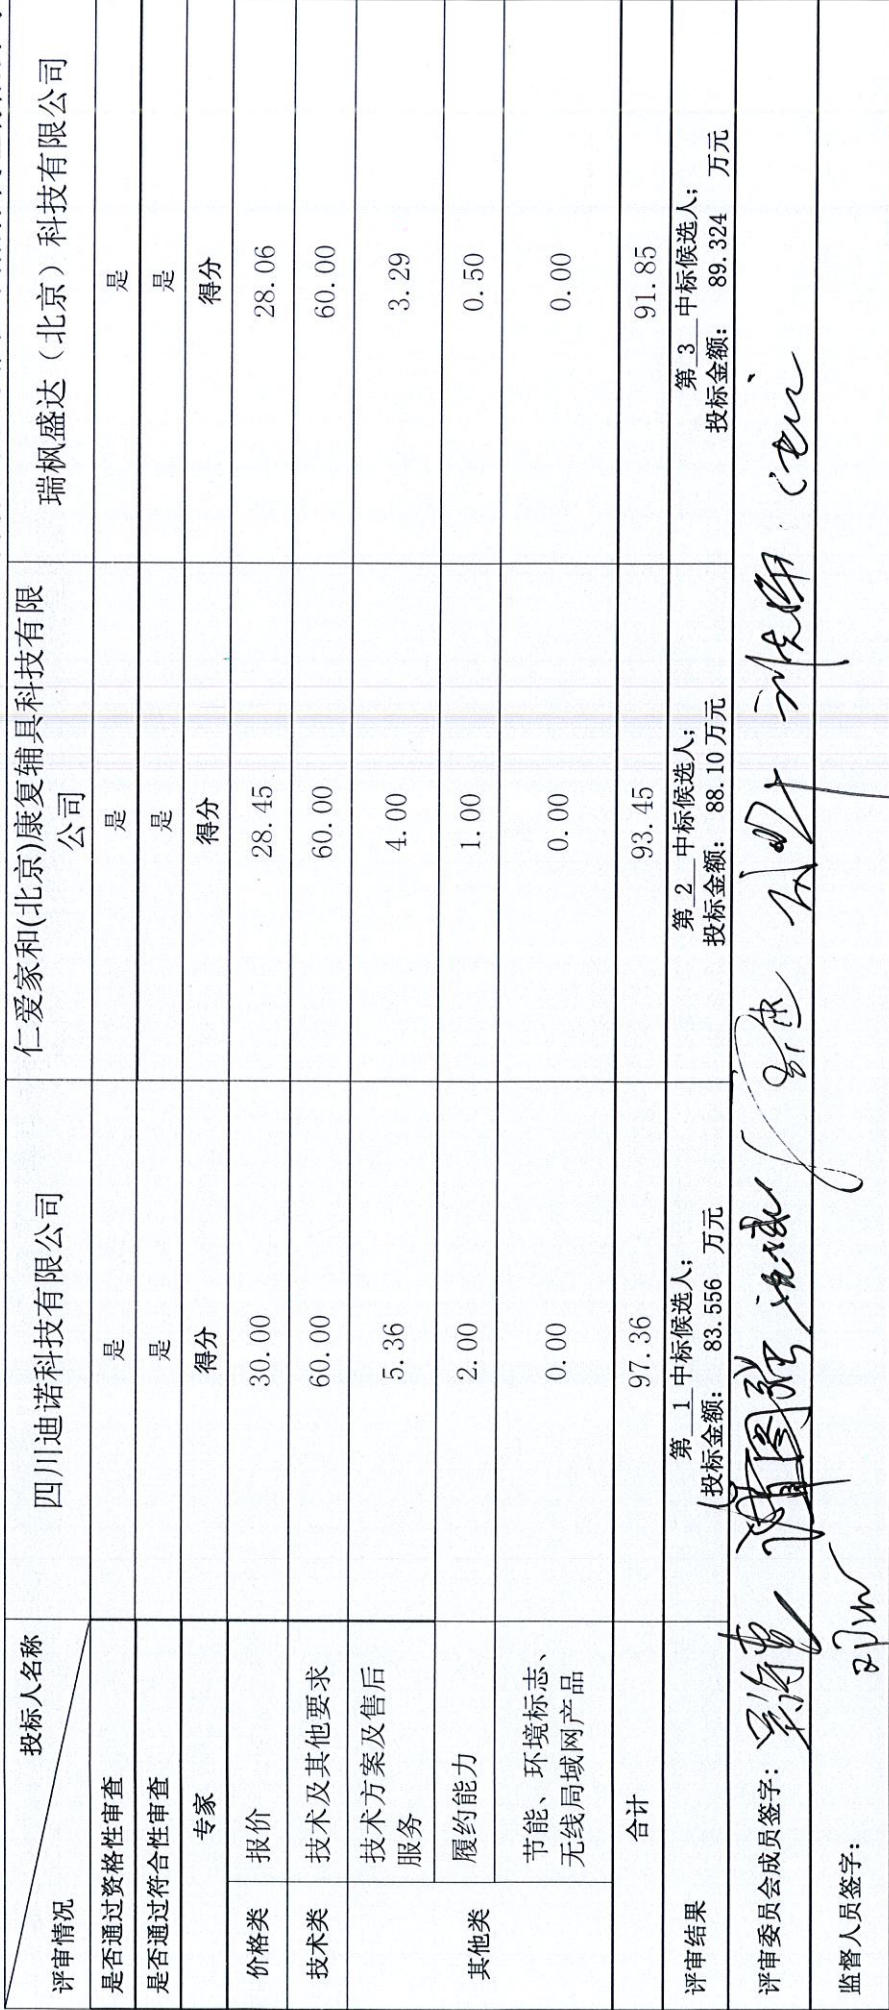 投标人名称
评审情况
四川迪诺科技有限公司
仁爱家和(北京)康复辅具科技有限
公司
瑞枫盛达（北京）科技有限公司
是否通过资格性审查 是 是 是
是否通过符合性审查 是 是 是
专家 得分 得分 得分
价格类 报价 30.00 28.45 28.06
技术类 技术及其他要求 60.00 60.00 60.00
其他类
技术方案及售后
服务
5.36 4.00 3.29
履约能力 2.00 1.00 0.50
节能、环境标志、
无线局域网产品
0.00 0.00 0.00
合计 97.36 93.45 91.85
评审结果
第 1 中标候选人；
投标金额： 83.556 万元
第 2 中标候选人；
投标金额： 88.10万元
第 3 中标候选人；
投标金额： 89.324 万元
评审委员会成员签字：
监督人员签字：